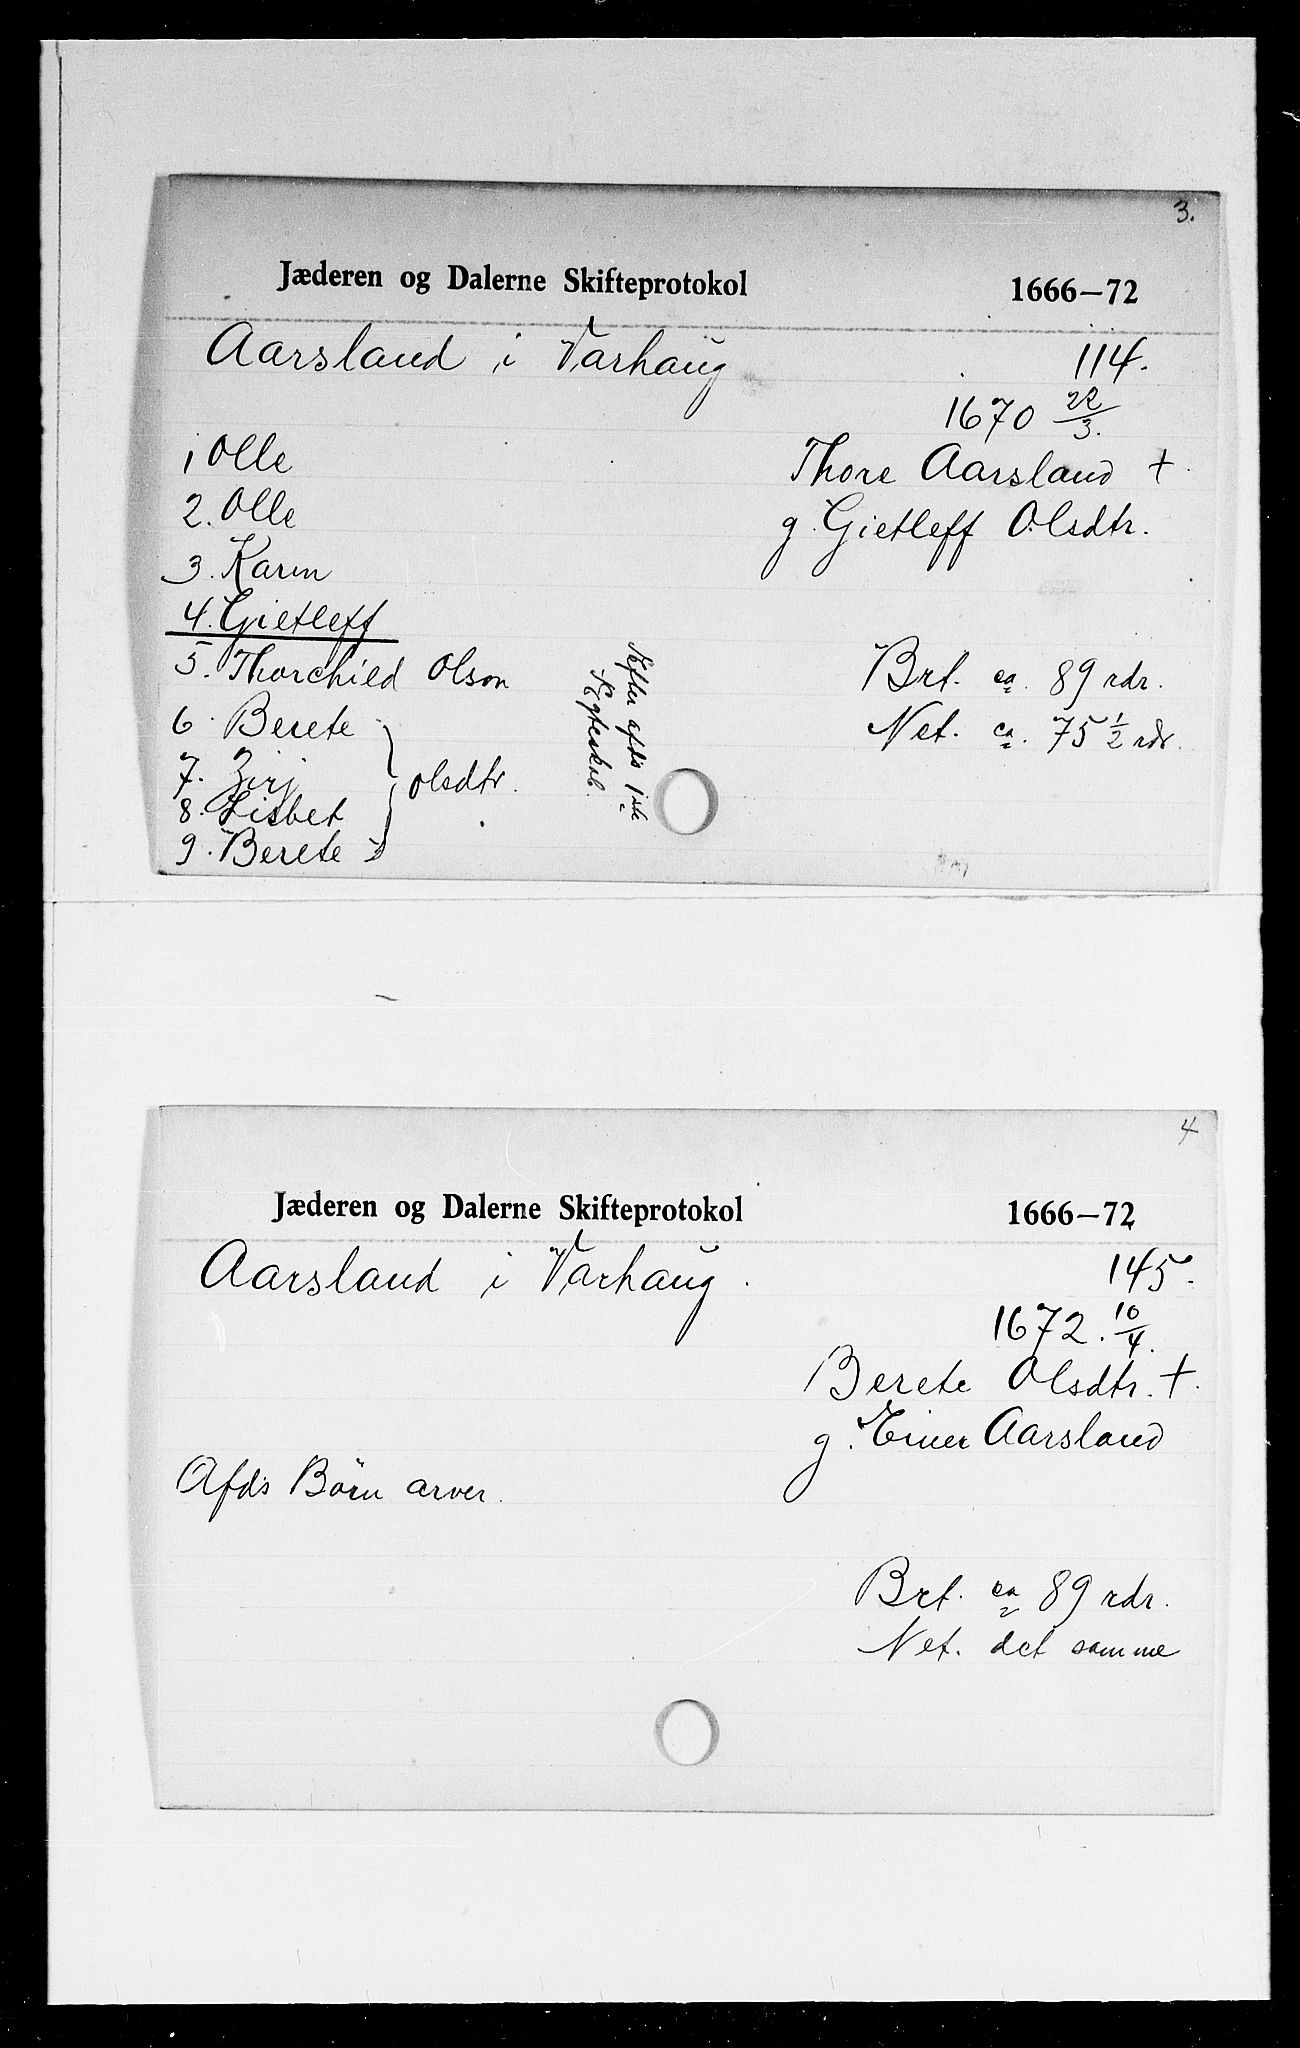 3.
Jæderen og Dalerne Skifteprotokol 1666–72
Aarsland i Varhaug 114.
1670 22/3.
1 Olle Thore Aarsland †
2. Olle g. Gietleff Olsdtr.
3. Karen
4. Gietleff
5. Thorchield Olson Brt. ca. 89 rdr.
6. Berete Net. ca. 75 1/2 rdr.
7. Zirj olsdtr.
8. Lisbet
9. Berete
Efter afds 1ste
Ægteskab.
4
Jæderen og Dalerne Skifteprotokol 1666–72
Aarsland i Varhaug. 145.
1672. 10/4.
Berete Olsdtr. †.
g. Einer Aarsland
Afds Börn arver.
Brt. ca 89 rdr.
Net. det samme